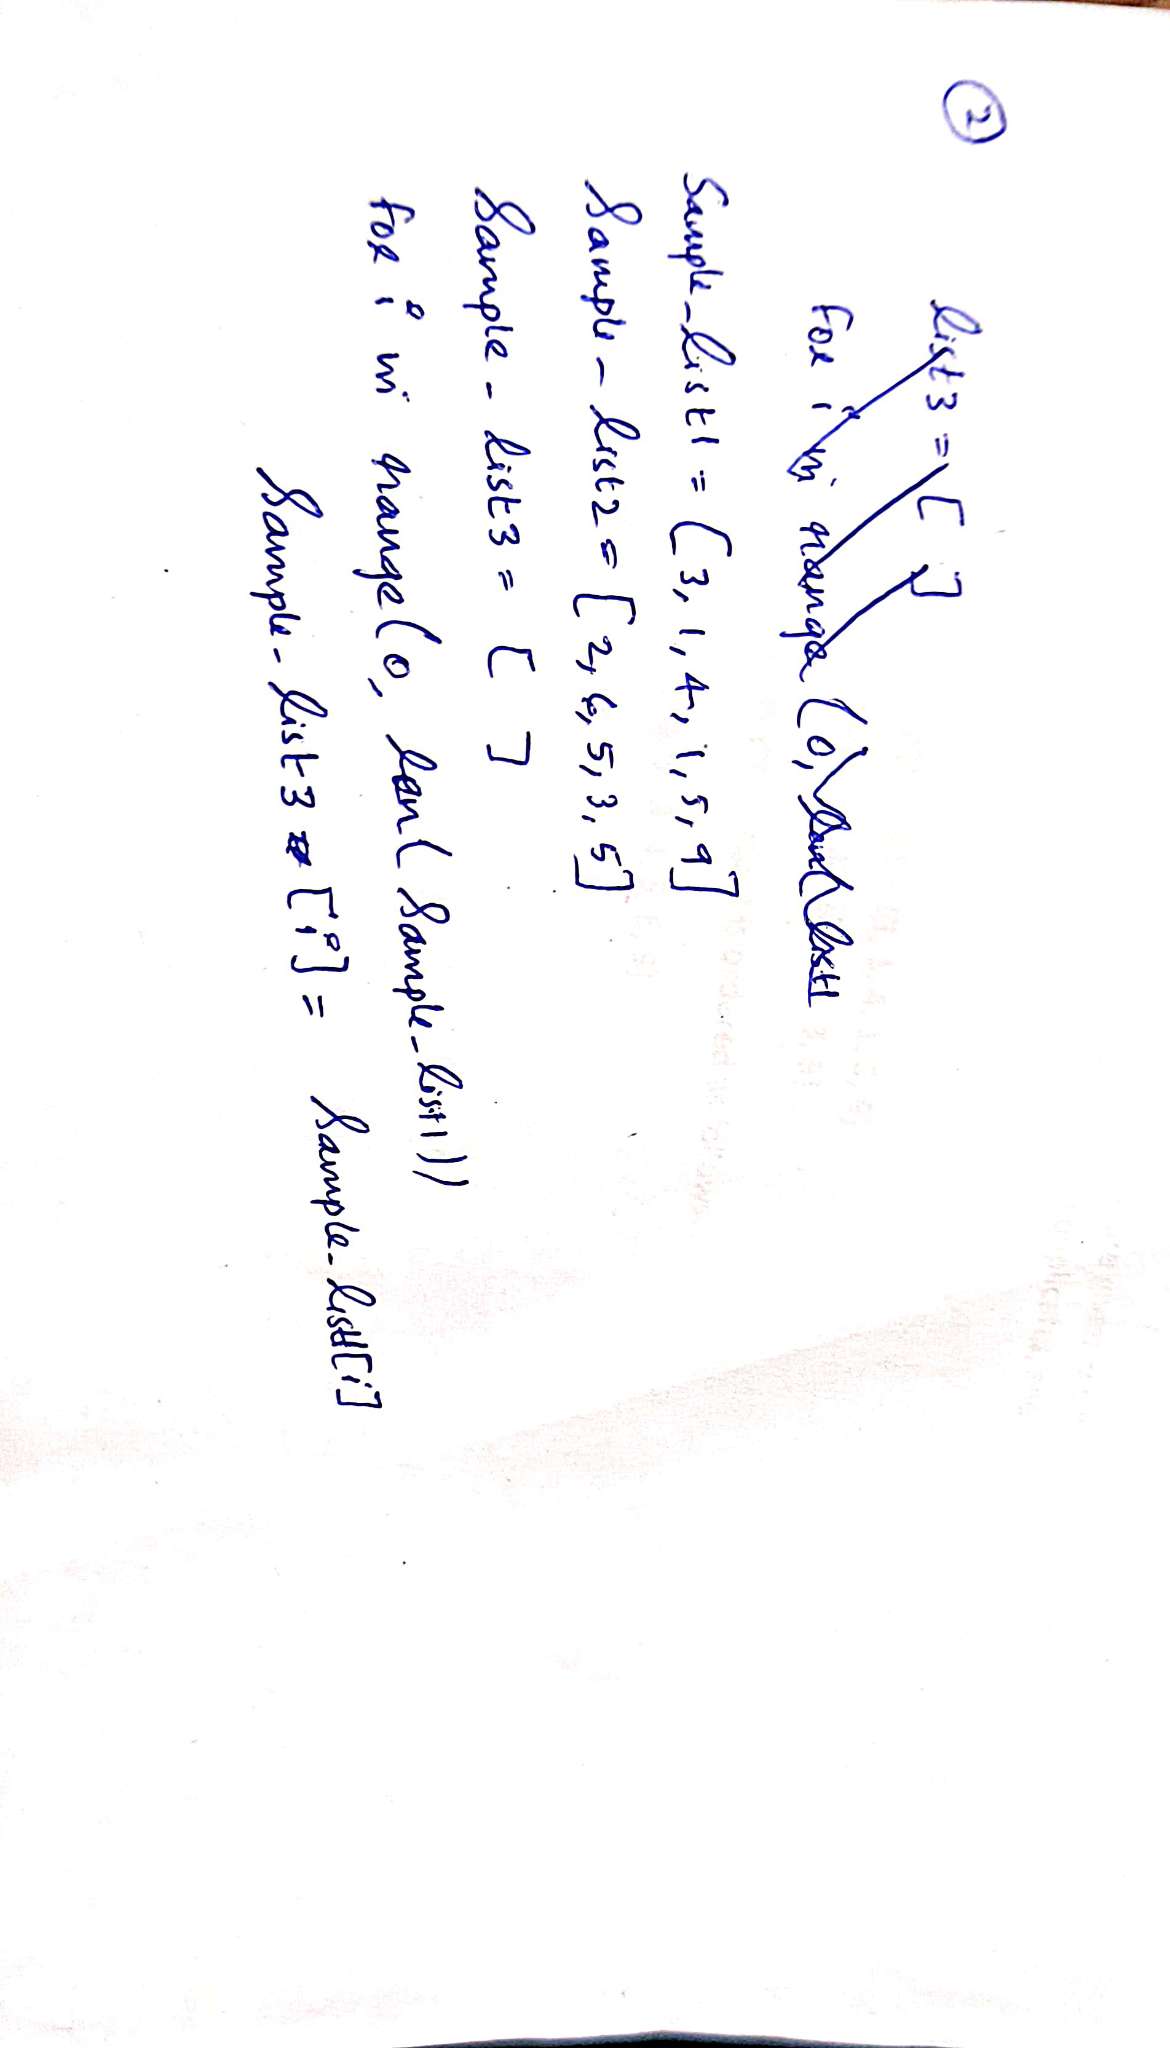 2
list3 = [ ]
for i in range (0, len( list1
Sample_list1 = [3, 1, 4, 1, 5, 9]
Sample_list2 = [2, 6, 5, 3, 5]
Sample_list3 = [ ]
for i in range(0, len(Sample_list1))
Sample_list3 [i] = Sample_list1[i]